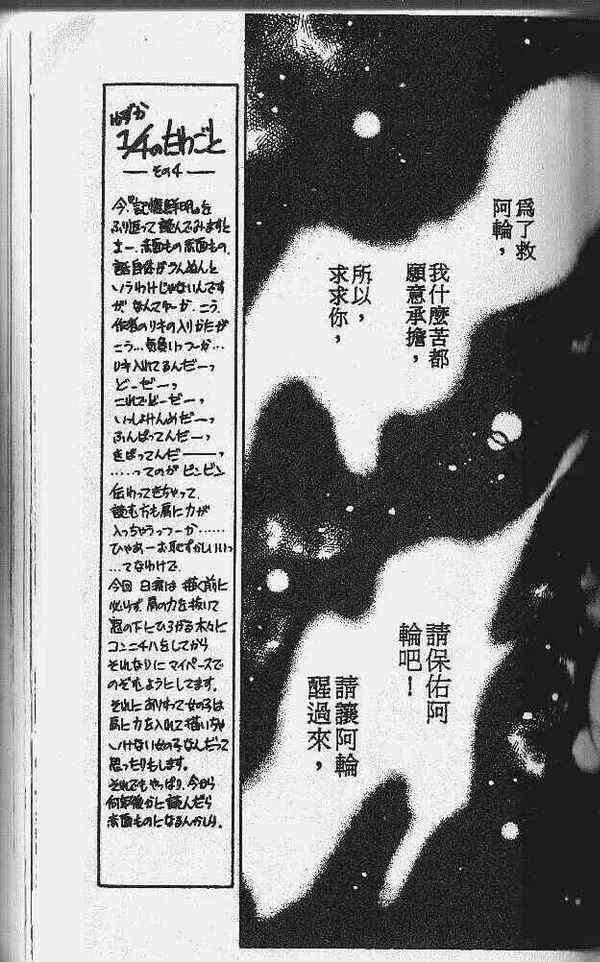 為了救
阿輪，
我什麼苦都
願意承擔，
所以，
求求你，
請保佑阿
輪吧！
請讓阿輪
醒過來，
ユチのたわごと
— その4 —
今『記憶鮮明』を
ふり返って読んでみますと
まー、赤面もの赤面もの。
話自体がうんぬんと
いうわけじゃないんです
が なんてーか、こう、
作者のリキの入りかたが
こう…気負いっつーか…
リキ入れてるんだーっ
どーだーっ
これでどーだーっ
いっしょけんめだーっ
ふんばってんだーっ
きばってんだーーーっ
……ってのが ビンビン
伝わってきちゃって、
読む方も肩に力が
入っちゃうっつーか……
ひゃあーお恥ずかしいいっ
…てなわけで、
今回 は 描く前に
必らず 肩の力を抜いて
窓の下にひろがる木々に
コンニチハをしてから
それなりに マイペースで
のぞむようにしてます。
それに ありすって女の子は
肩に力を入れて描いちゃ
いけない女の子なんだって
思ったりもします。
それでもやっぱり、今から
何年後かに読んだら
赤面ものになるんかしら。